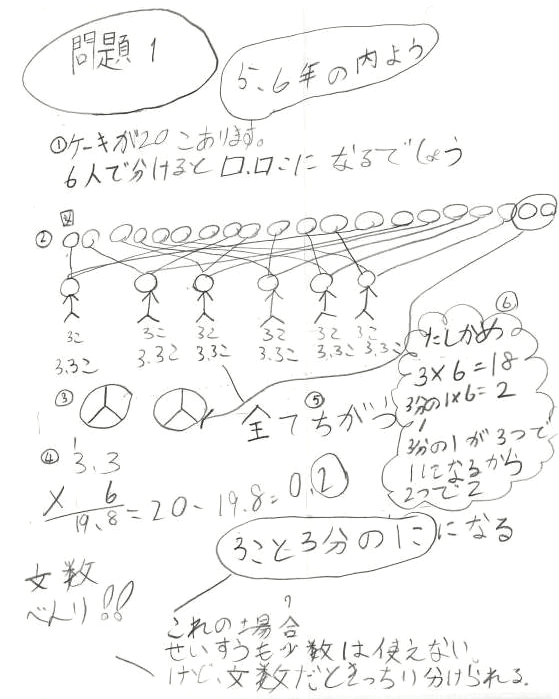 問題 1
5、6年の内よう
①ケーキが20こあります。
6人で分けると口.口こになるでしょう
②
図
3こ 3こ 3こ 3こ 3こ 3こ
3.3こ 3.3こ 3.3こ 3.3こ 3.3こ 3.3こ
③
④
3.3
× 6
19.8 = 20 - 19.8 = 0.2
⑤
全てちがう
⑥
たしかめ
3×6=18
3分の1×6=2
↑
3分の1が3つで
1になるから
2つで2
3こと3分の1こになる
文数
べんり!!
これの場合
せいすうも少数は使えない。
けど、文数だときっちり分けられる。